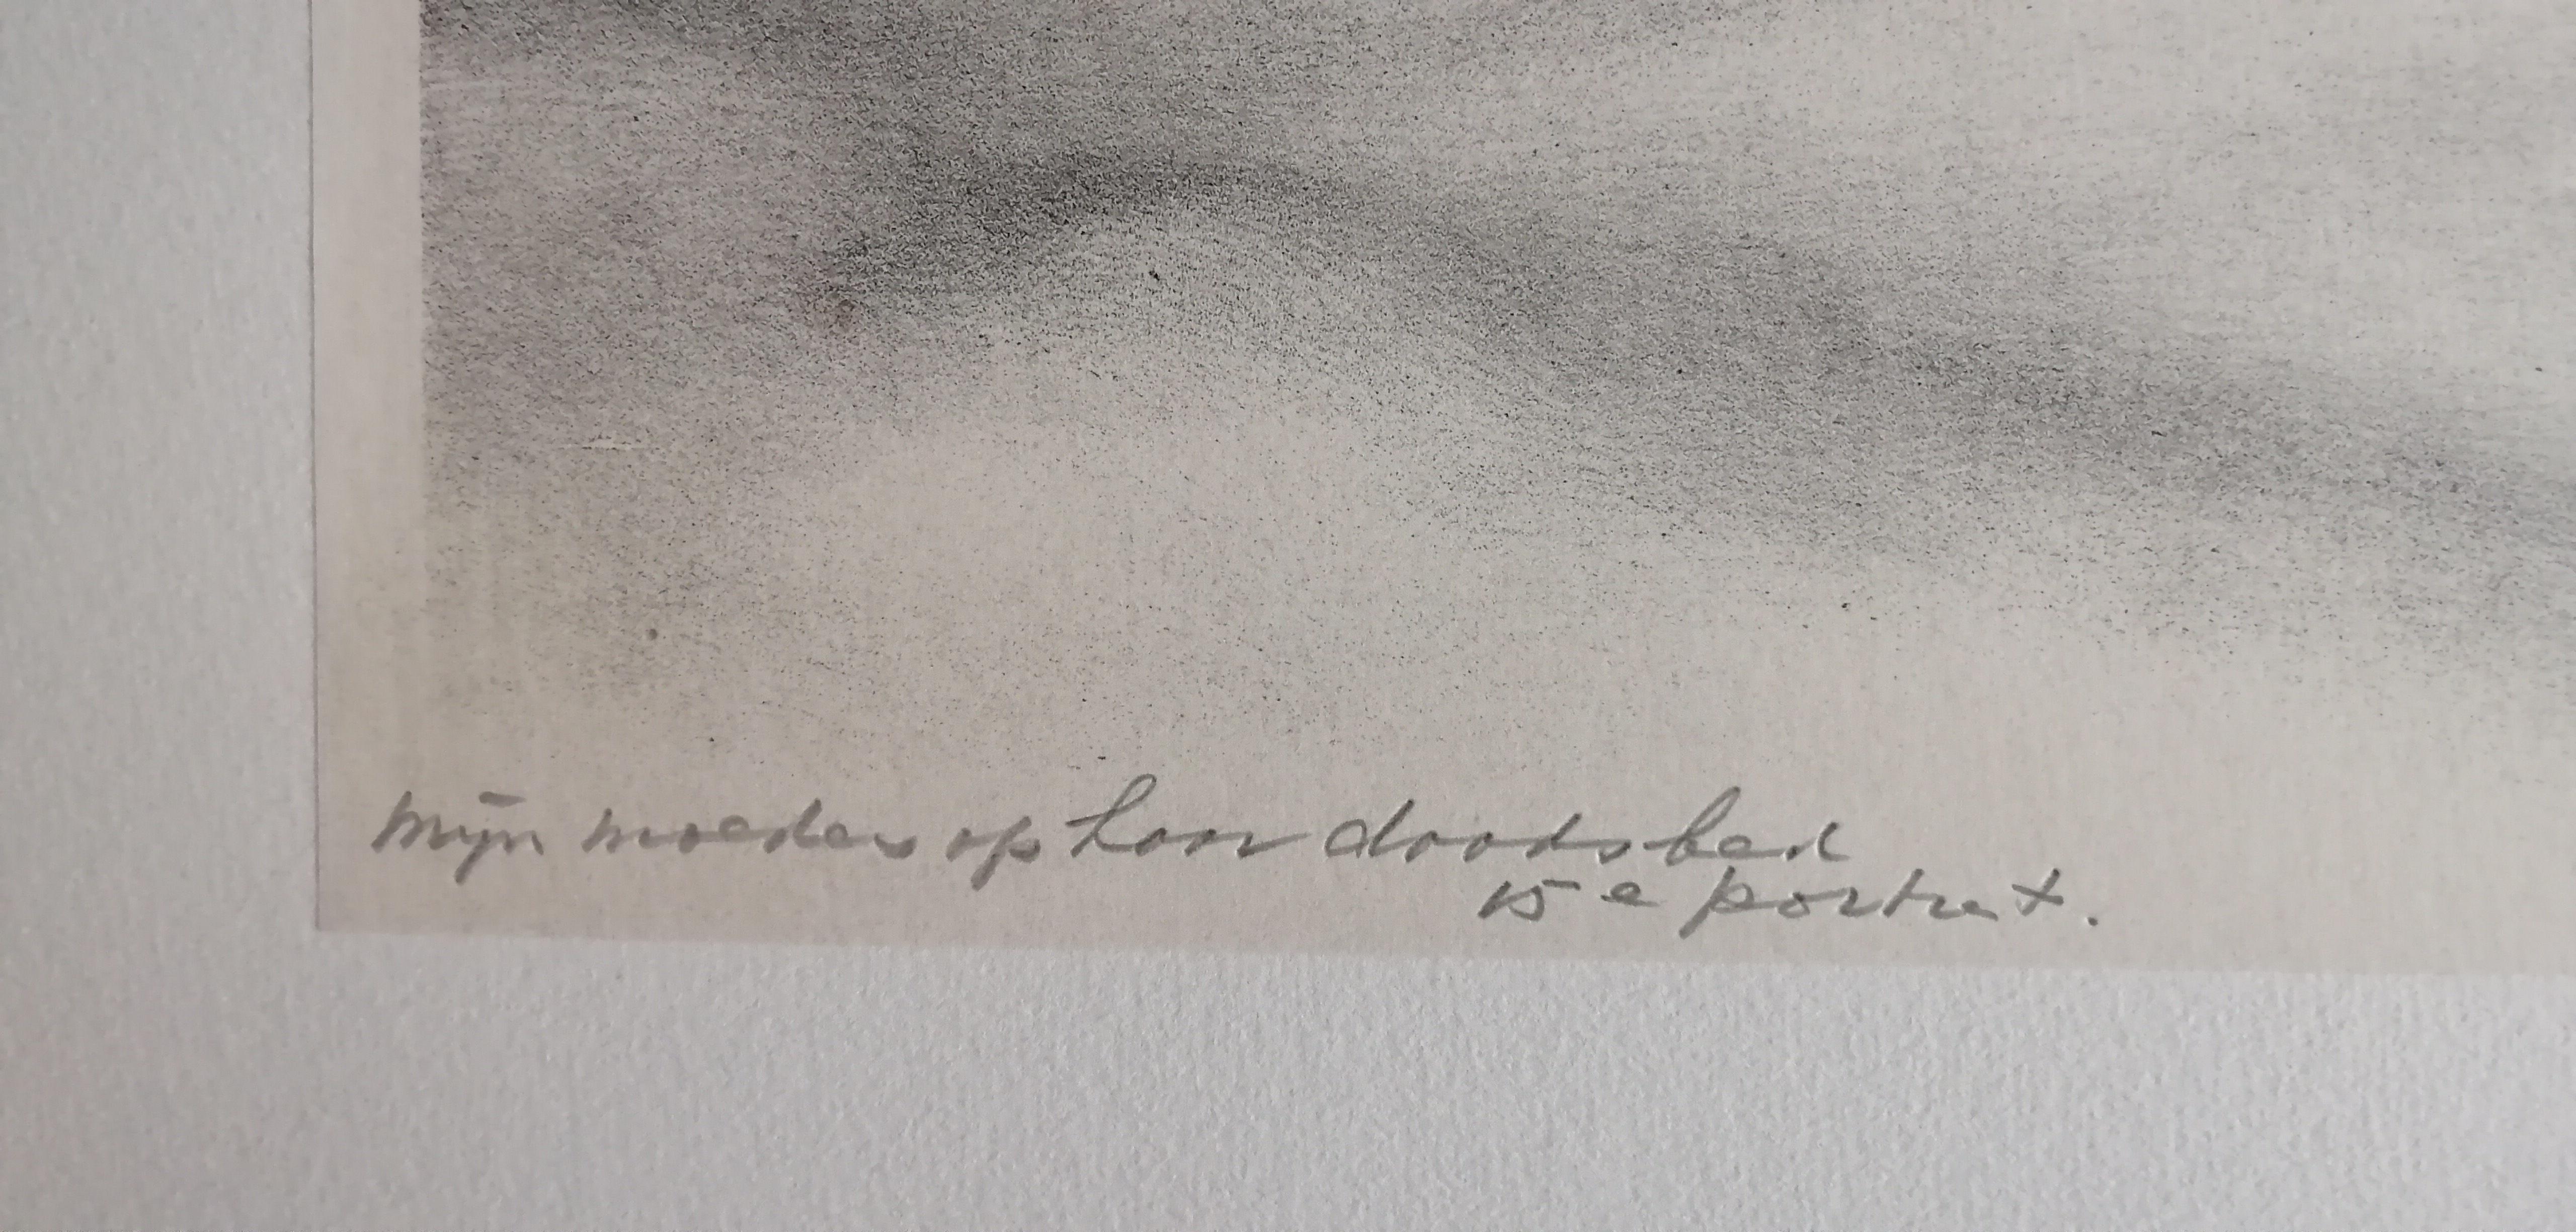 Mijn moeder op haar doodsbed
15e portret.